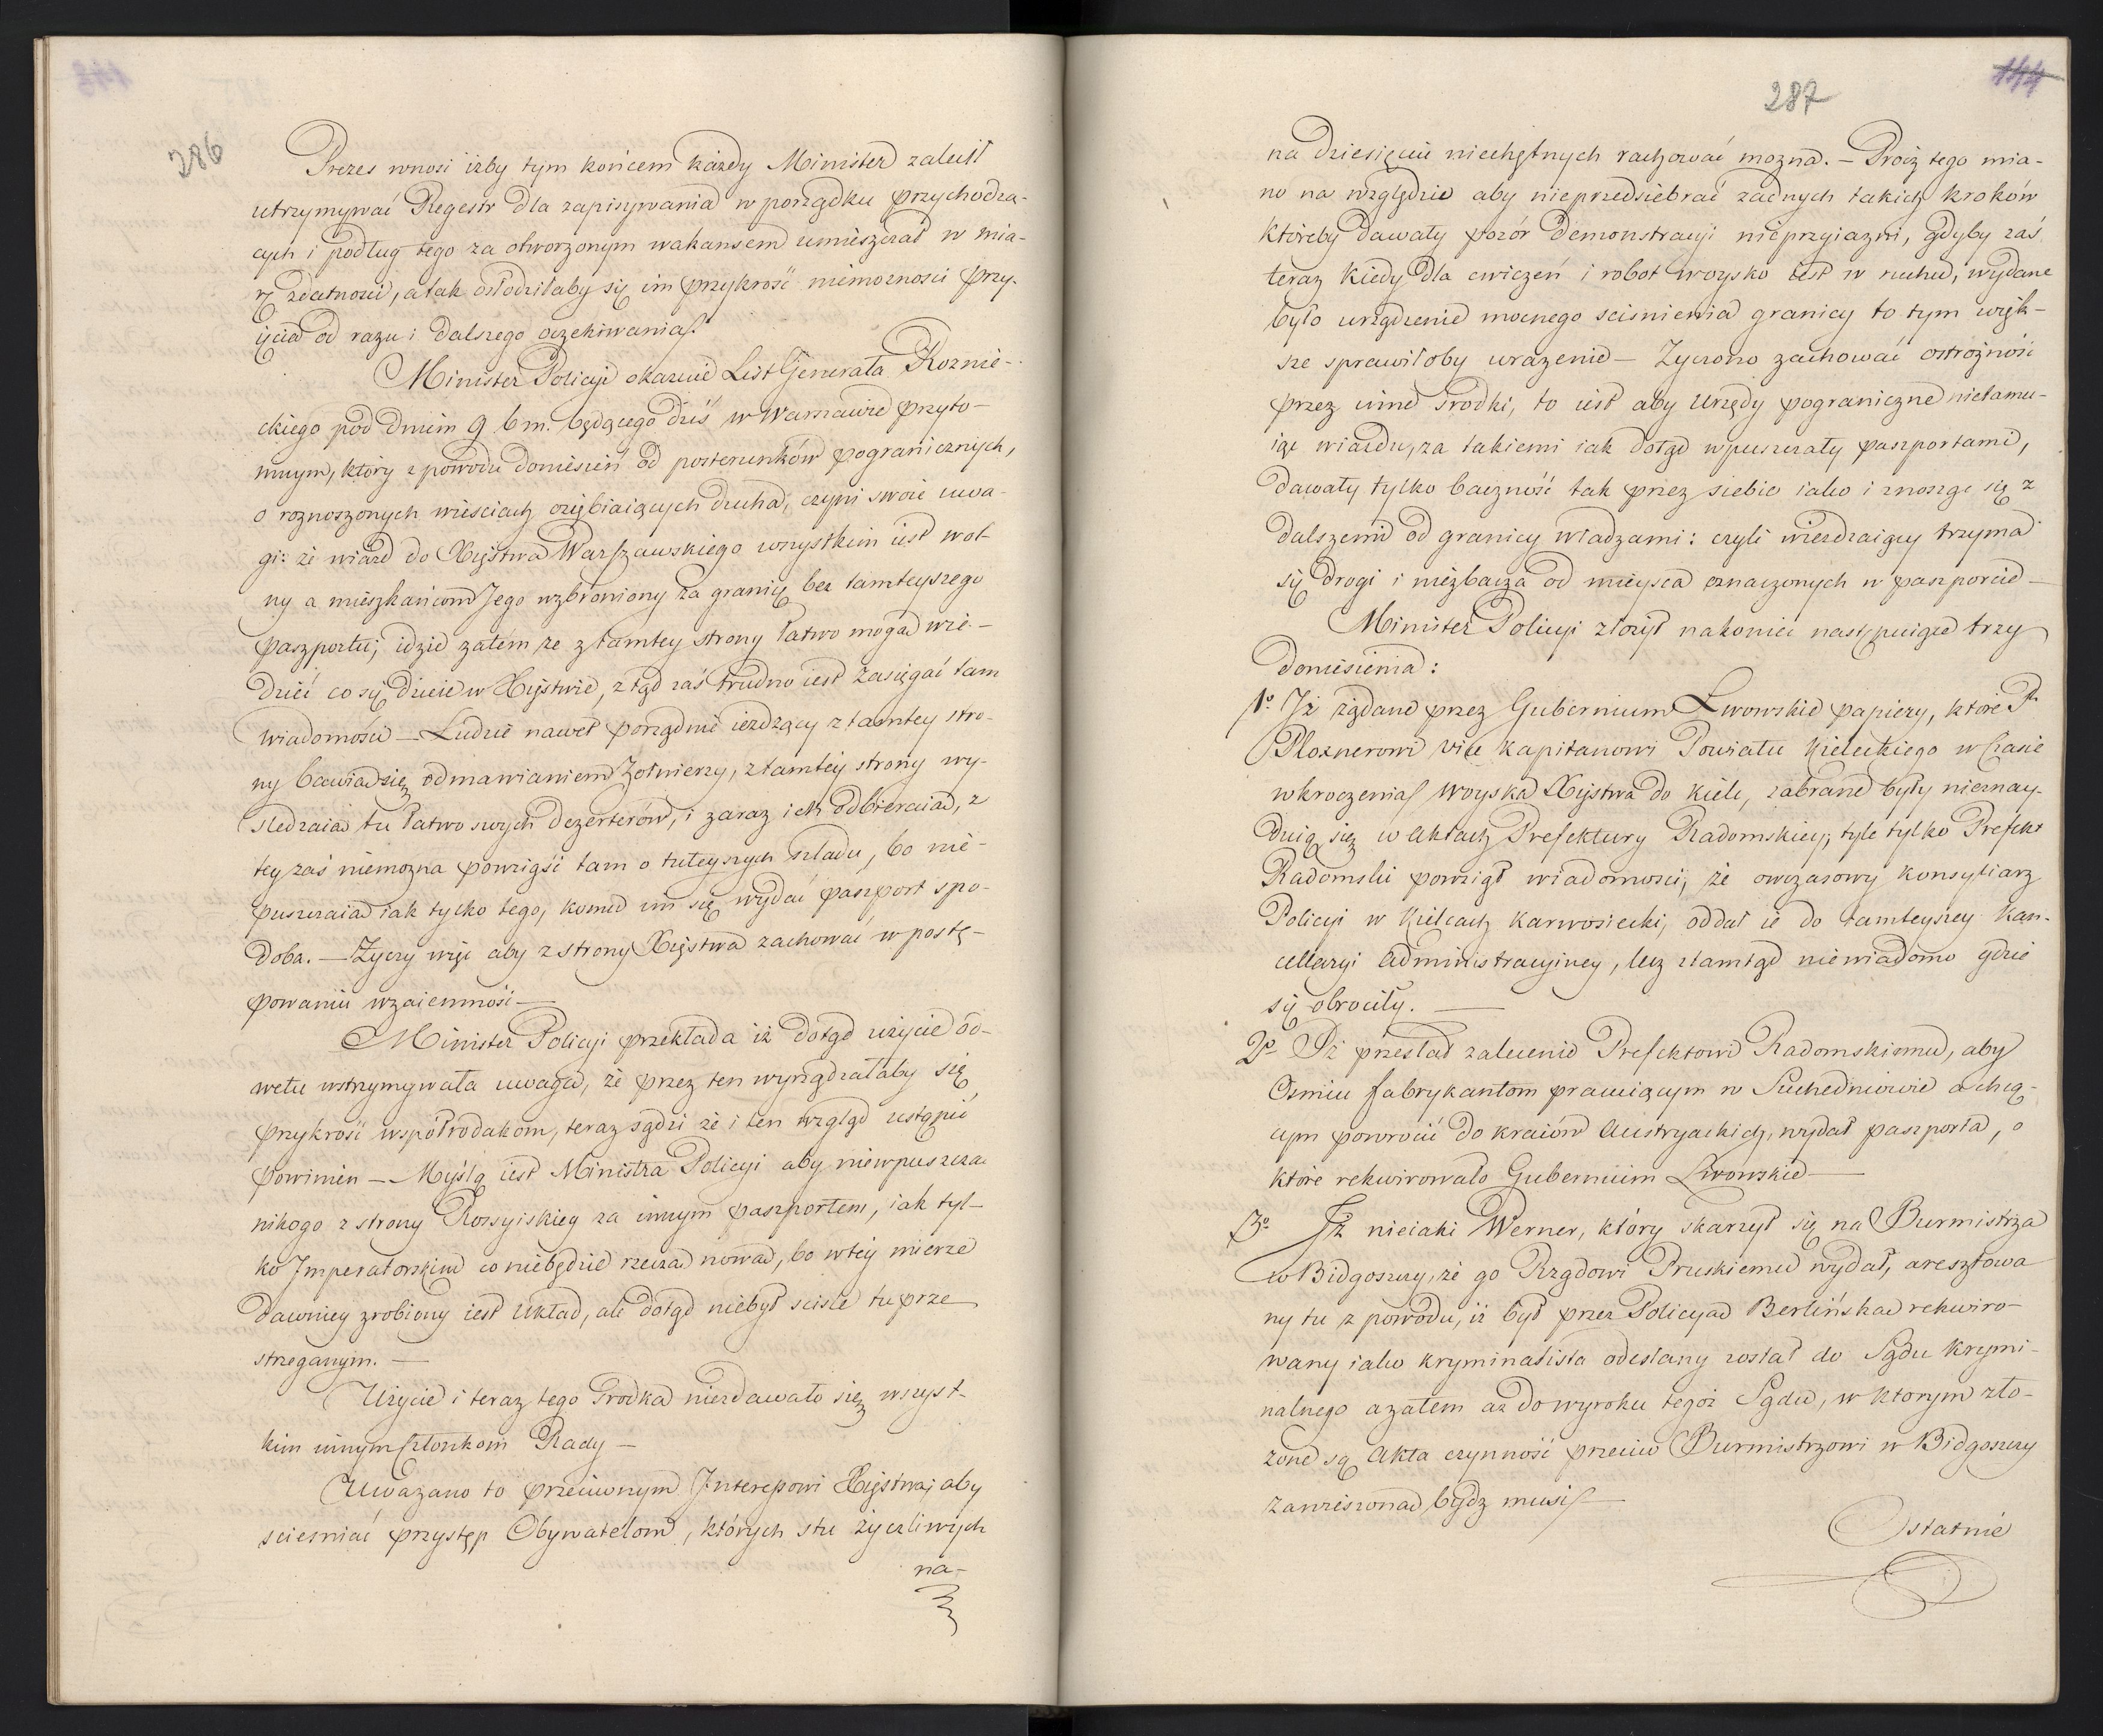 286
Prezes wnosi iżby tym końcem każdy Minister zalecił
utrzymywać Regestr dla zapisywania w porządku przychodzą-
cych i podług tego za otworzonym wakansem umieszczał w mia-
rę zdatności, a tak osłodziłaby się im przykrość niemożności przy-
ięcia od razu i dalszego oczekiwania.
Minister Policyi okazuie List Jenerała Roznie-
ckiego pod dniem 9 b m. będącego dziś w Warszawie przyto-
mnym, który z powodu doniesień od posterunków pogranicznych,
o roznoszonych wieściach oziębiaiących ducha, czyni swoie uwa-
gi: że wiazd do Xięstwa Warszawskiego wszystkim iest wol
ny a mieszkańcom Jego wzbroniony za granicę bez tamteyszego
paszportu; idzie zatem że z tamtey strony łatwo mogą wie-
dzieć co się dzieie w Xięstwie, ztąd zaś trudno iest zasięgać tam
wiadomości — Ludzie nawet porządnie ieżdżący z tamtey stro-
ny bawią się odmawianiem żołnierzy, z tamtey strony wy-
śledzaią tu łatwo swych dezerterów, i zaraz ich odbieraią, z
tey zaś niemożna powziąść tam o tuteyszych śladu, bo nie-
puszczaią iak tylko tego, komu im się wydać paszport spo-
doba. — Życzy więc aby z strony Xięstwa zachować w postę-
powaniu wzaiemność —
Minister Policyi przekłada iż dotąd użycie od-
wetu wstrzymywała uwaga, że przez ten wyrządzałaby się
przykrość współrodakom, teraz sądzi że i ten wzgląd ustąpić
powinien — Myślą iest Ministra Policyi aby niewpuszczać
nikogo z strony Rossyiskiey za innym paszportem, iak tyl-
ko Imperatorskim co niebędzie rzeczą nową, bo w tey mierze
dawniey zrobiony iest układ, ale dotąd niebył ściśle tu prze
strzeganym. —
Użycie i teraz tego środka niezdawało się wszyst-
kim innym Członkom Rady —
Uważano to przeciwnym Interessowi Xięstwa, aby
ścieśniać przystęp Obywatelom, których stu życzliwych
na-
287
144
na dziesięciu niechętnych rachować można. — Prócz tego mia-
no na względzie aby nieprzedsiebrać żadnych takich kroków
któreby dawały pozór demonstracyi nieprzyiazni, gdyby zaś
teraz kiedy dla ćwiczeń i robot woysko iest w ruchu, wydane
było urządzenie mocnego ściśnienia granicy to tym więk-
sze sprawiłoby urażenie — Życzono zachować ostrożność
przez inne środki, to iest aby Urzędy pograniczne nietamu-
iąc wiazdu, za takiemi iak dotąd wpuszczały paszportami,
dawały tylko baczność tak przez siebie iako i znosząc się z
dalszemi od granicy władzami: czyli wieżdżaiący trzyma
się drogi i niezbacza od mieysca oznaczonych w paszporcie —
Minister Policyi złożył nakoniec następuiące trzy
doniesienia:
1º. Iż żądane przez Gubernium Lwowskie papiery, które P.
Ploznerowi vice kapitanowi Powiatu Kieleckiego w czasie
wkroczenia woyska Xięstwa do Kielc, zabrane były nieznay-
duią się w aktach Prefektury Radomskiey; tyle tylko Prefekt
Radomski powziął wiadomości, że owczasowy Konsyliarz
Policyi w Kielcach Karwosiecki, oddał ie do tamteyszey Kan-
cellaryi administracyiney, lecz ztamtąd niewiadomo gdzie
się obróciły. —
2º Iż przesłał zalecenie Prefektowi Radomskiemu, aby
Ośmiu fabrykantom pracuiącym w Suchedniowie a chcą-
cym powrócić do kraiów Austryackich, wydał paszporta, o
które rekwirowało Gubernium Lwowskie —
3º. Iż nieiaki Werner, który skarżył się na Burmistrza
w Bidgoszczy, że go Rządowi Pruskiemu wydał, aresztowa
ny tu z powodu, iż był przez Policyą Berlińską rekwiro-
wany iako kryminalista odesłany został do Sądu krymi-
nalnego a zatem aż do wyroku tegoż Sądu, w którym zło-
żone są akta czynność przeciw Burmistrzowi w Bidgoszczy
zawieszoną bydz musi —
Ostatnie